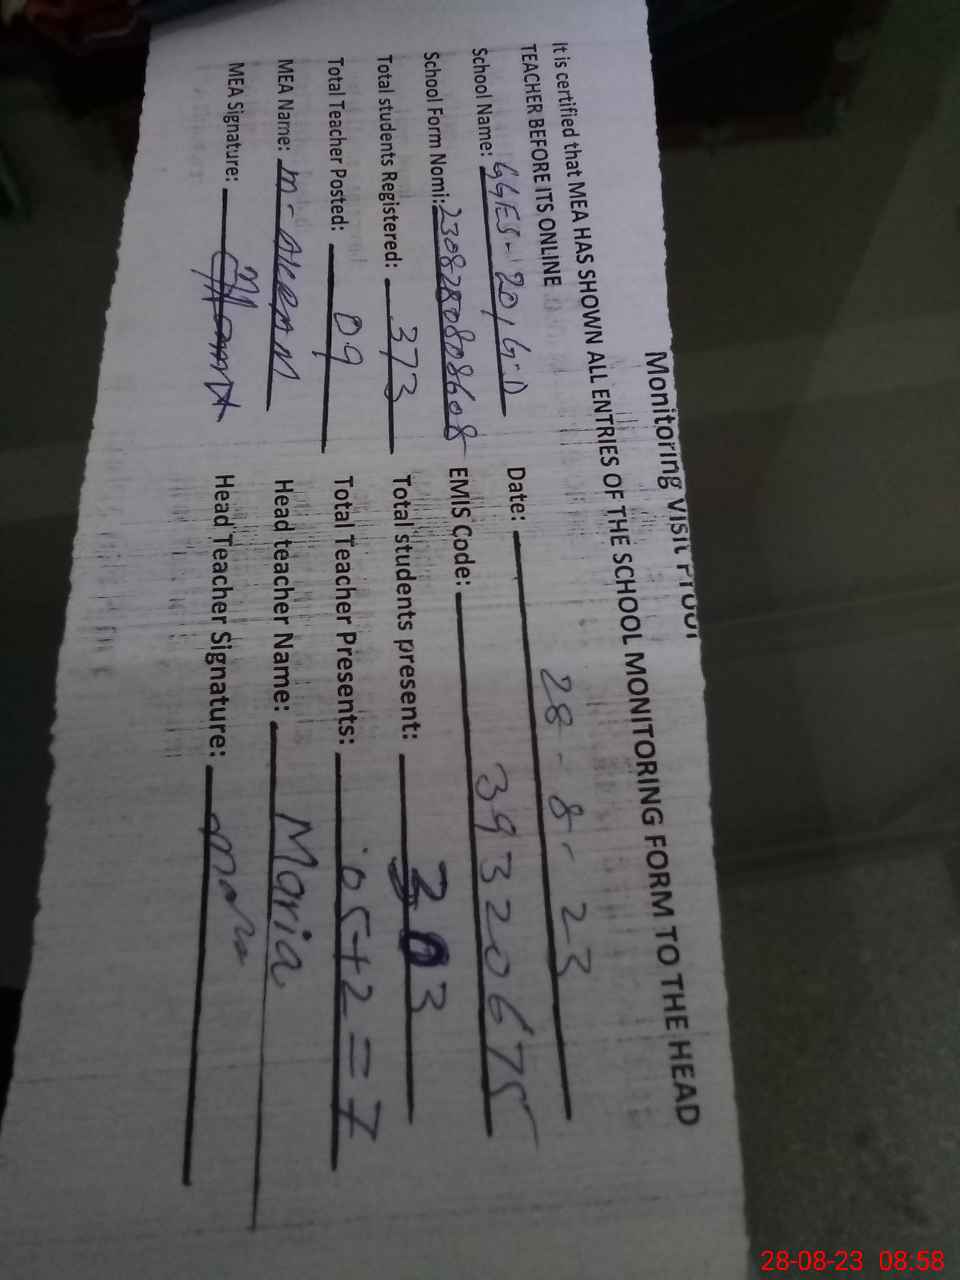 Monitoring Visit Proof
It is certified that MEA HAS SHOWN ALL ENTRIES OF THE SCHOOL MONITORING FORM TO THE HEAD
TEACHER BEFORE ITS ONLINE
School Name: GGES-201G-D Date: 28-8-23
School Form Nomi: 2308280808608 EMIS Code: 39320675
Total students Registered: 373 Total students present: 203
Total Teacher Posted: 09 Total Teacher Presents: 05+2=7
MEA Name: M-Akram Head teacher Name: Maria
MEA Signature: Head Teacher Signature:
28-08-23 08:58